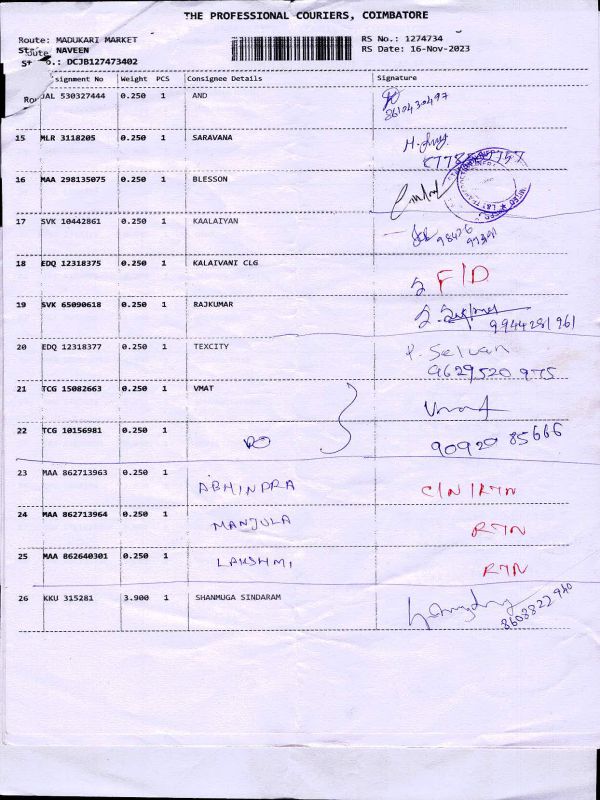 THE PROFESSIONAL COURIERS, COIMBATORE
Route: MADUKARI MARKET
RS No.: 1274734
NAVEEN
RS Date: 16-Nov-2023
DCJB127473402
signment No Weight PCS Consignee Details Signature
JAL 530327444 0.250 1 AND
8610430497
15 MLR 3118205 0.250 1 SARAVANA
16 MAA 298135075 0.250 1 BLESSON
17 SVK 10442861 0.250 1 KAALAIYAN
98426
18 EDQ 12318375 0.250 1 KALAIVANI CLG
F/D
19 SVK 65090618 0.250 1 RAJKUMAR
9944281961
20 EDQ 12318377 0.250 1 TEXCITY
P. Selvan
9629520975
21 TCG 15082663 0.250 1 VMAT
22 TCG 10156981 0.250 1
DO
90920 85666
23 MAA 862713963 0.250 1
ABHINDRA C/N/RTN
24 MAA 862713964 0.250 1
MANJULA RTN
25 MAA 862640301 0.250 1
LAKSHMI RTN
26 KKU 315281 3.900 1 SHANMUGA SINDARAM
8608822940